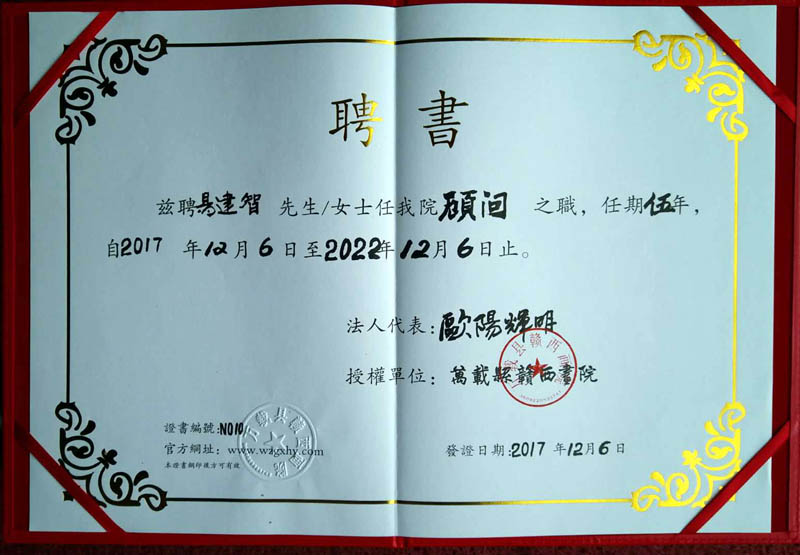 聘書
茲聘易建智 先生/女士任我院顧问 之職，任期伍年，
自2017 年12月6日至2022年12月6日止。
法人代表：歐陽輝明
授權單位：萬載縣贛西畫院
證書編號：NO10
官方網址：www.wzgxhy.com
本證書鋼印後方可有效
發證日期：2017 年12月6日